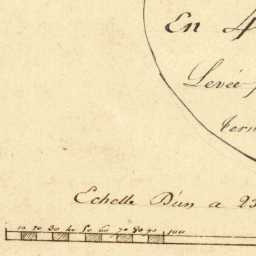 En 4
Levée
Echelle D'un a 25
10 20 30 40 50 60 70 80 90 100